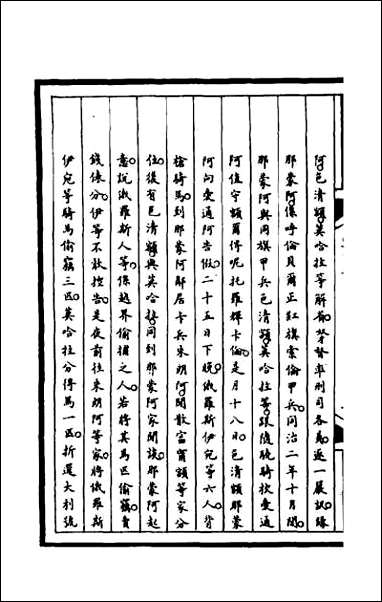 阿色清額莫哈拉等解前督率刑司各員逐一展訊緣
那蒙阿係呼倫貝爾正紅旗索倫甲兵同治二年十月間
那蒙阿與同旗甲兵色清額莫哈拉等跟隨驍騎校愛通
阿值守額爾得呢托羅輝卡倫是月十八日色清額那蒙
阿向愛通阿告假二十五日下晚俄羅斯伊宛等六人背
槍騎馬到那蒙阿鄰居卡兵朱朗阿閒散富寗額等家分
住後有色清額與莫哈拉同到那蒙阿家閒談那蒙阿起
意說俄羅斯人等係越界偷捕之人若將其馬匹偷竊賣
錢俵分伊等不敢控告是夜前往朱朗阿等家將俄羅斯
伊宛等騎馬偷竊三匹莫哈拉分得馬一匹折還大利號